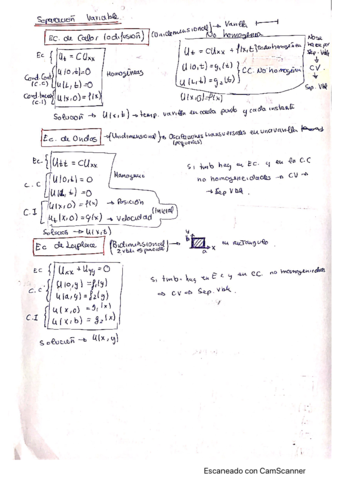 Separación Variable
Ec. de Calor (o difusión) (Unidimensional) → Varilla
No homogénea
Ec { Ut = CUxx
Cond. Cont (C.C) { U(0,t)=0
U(L,t)=0
Homogéneas
C.I { U(x,0)=f(x)
Ut = CUxx + f(x,t)
U(0,t)=g1(t)
U(L,t)=g2(t)
} CC. No homogén
U(x,0)=f(x)
No se hace por Sep. Vble
↓
CV
↓
Sep. Vble
Solución → U(x,t) → temp. varilla en cada punto y cada instante
Ec. de Ondas → (Unidimensional) → Oscilaciones transversales en una varilla
(pequeñas)
Ec. { Utt = CUxx
C.C { U(0,t)=0
U(L,t)=0
Homogéneo
C.I { U(x,0)=f(x) → Posición
Ut(x,0)=g(x) → Velocidad
(inicial)
Si tmb hay en Ec. y en la C.C
no homogeneidades → CV →
→ Sep Vble.
Solución → U(x,t)
Ec de Laplace (Bidimensional) → en rectángulo.
2 vbles espaciales
y
b
a
x
Ec { Uxx + Uyy = 0
C.C { U(0,y)=f1(y)
U(a,y)=f2(y)
C.I { U(x,0)=g1(x)
U(x,b)=g2(x)
Si tmb. hay en Ec y en CC. no homogeneidades
→ CV → Sep. Vble.
Solución → U(x,y)
Escaneado con CamScanner